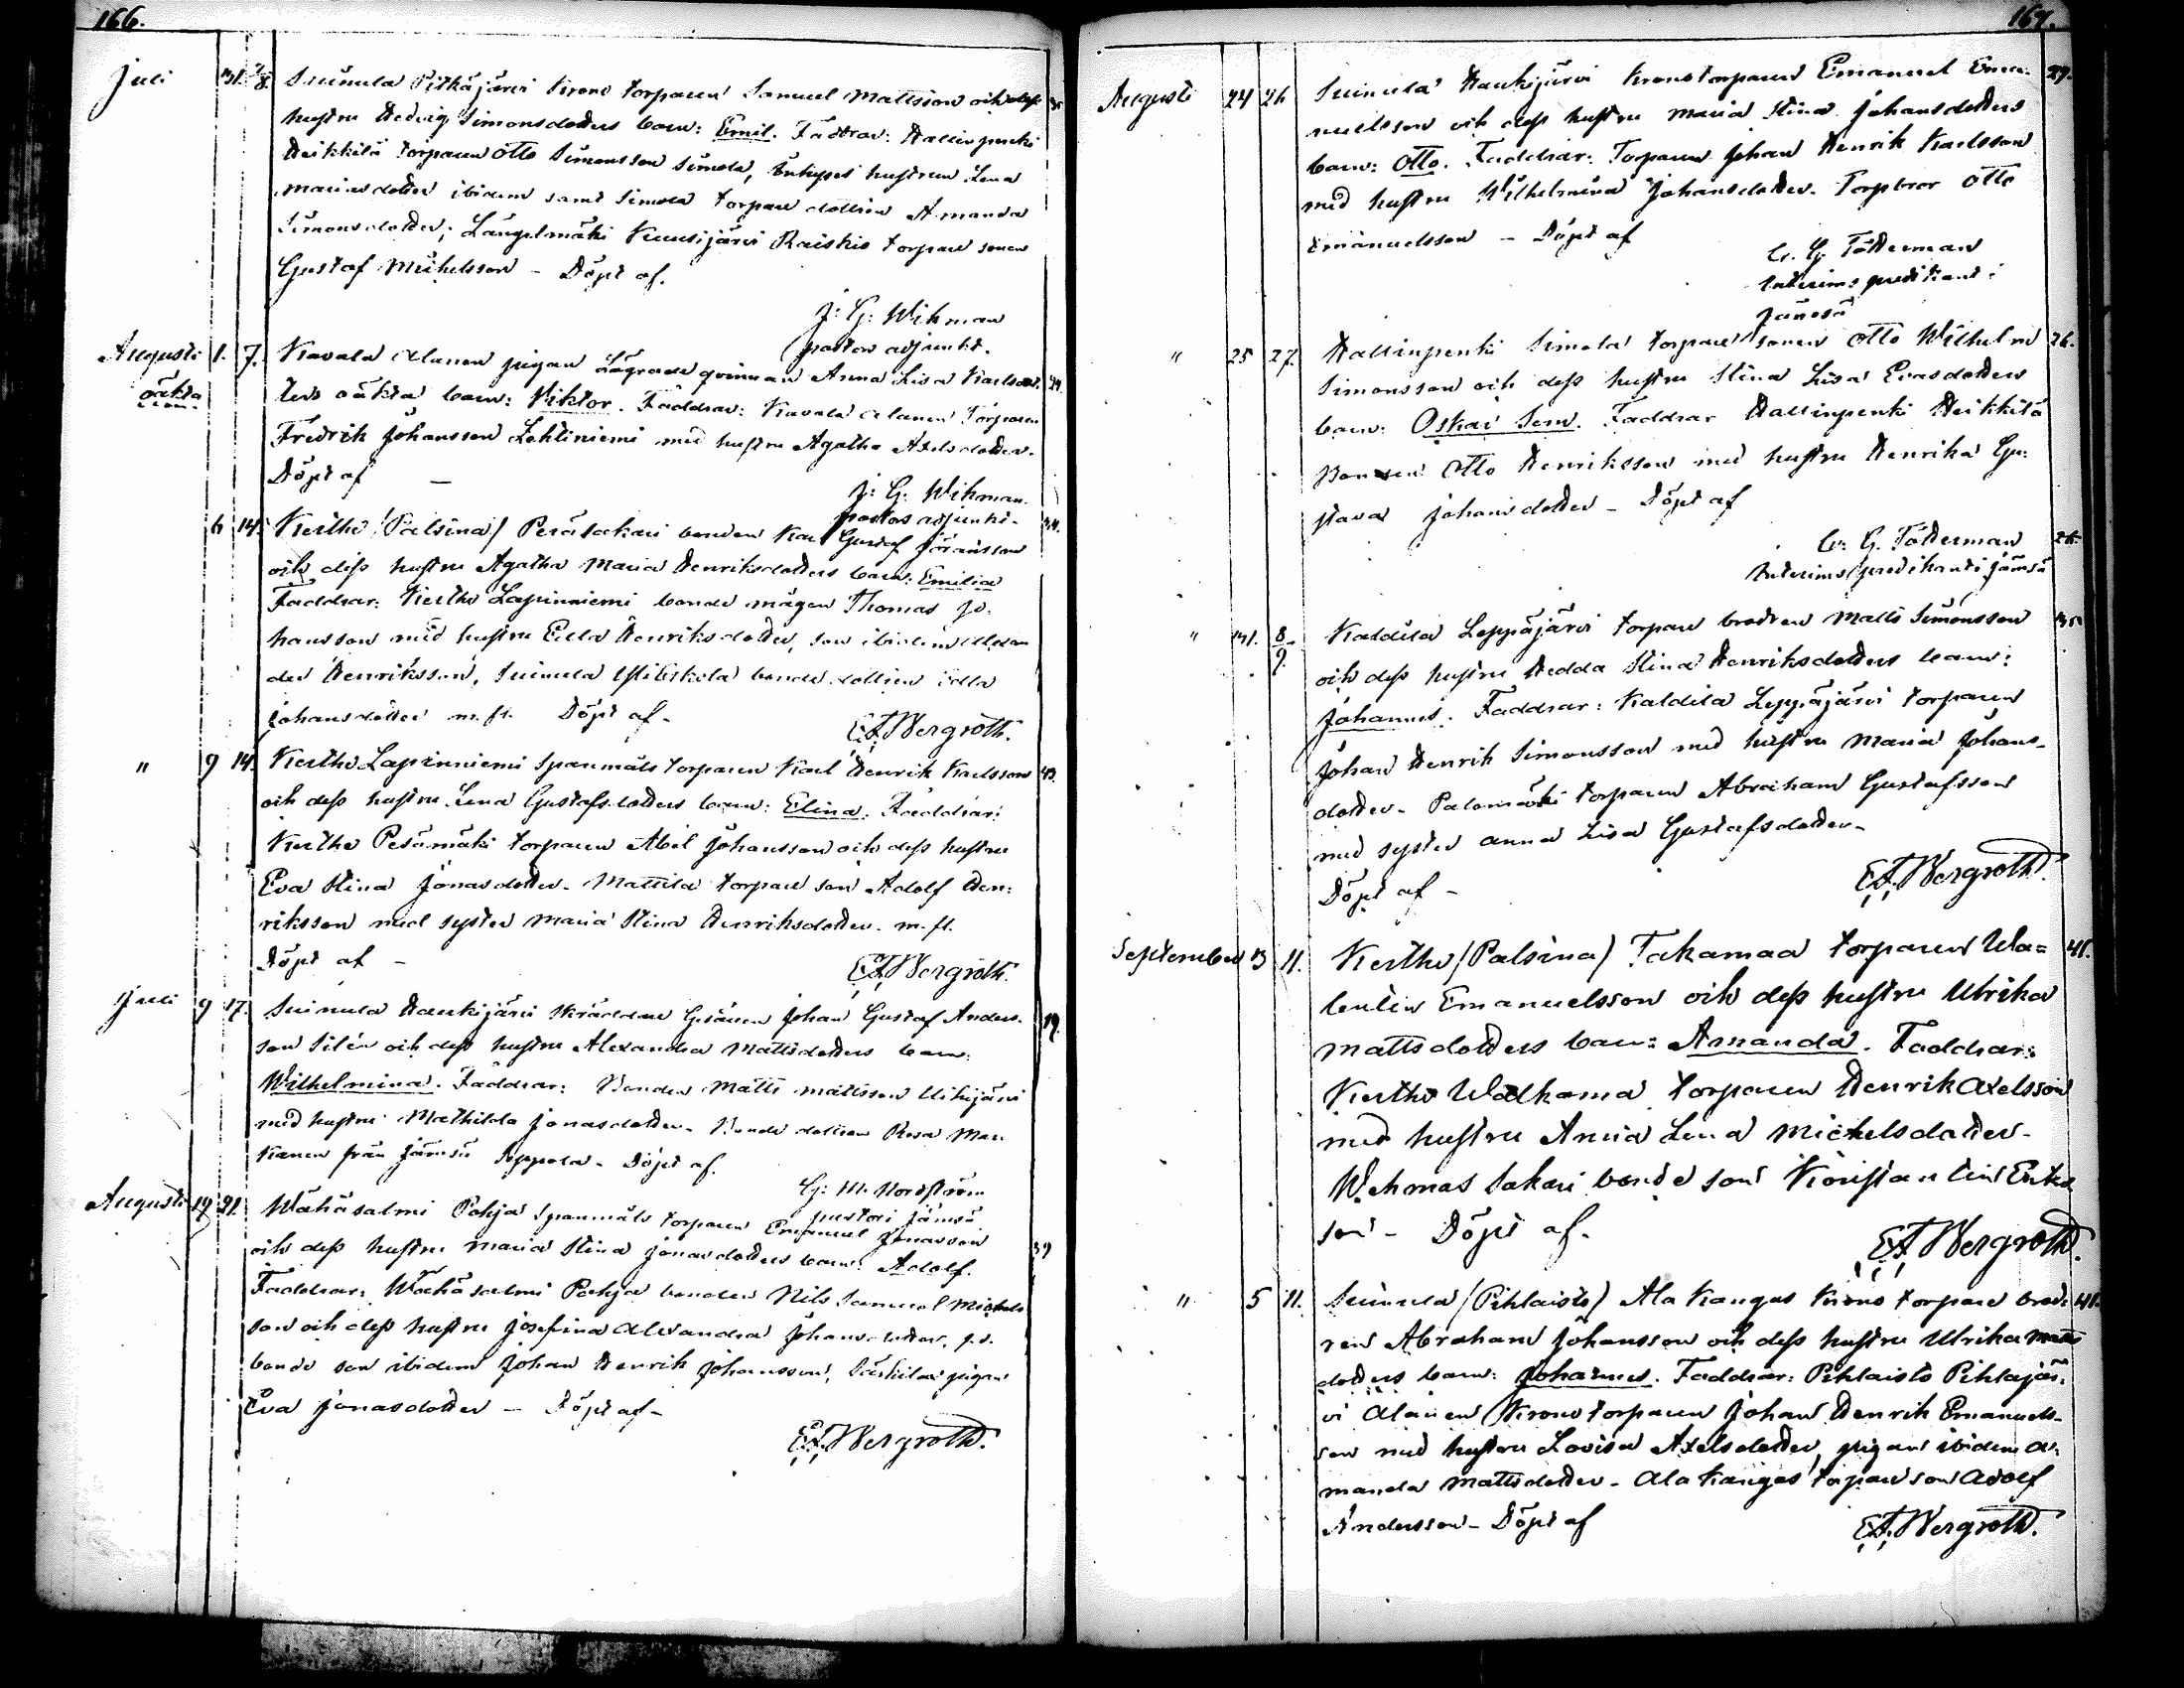 166.
Juli 31. 7/8. Suinula Pitkäjärvi Krono torparen Samuel Mattsson och dess 35
hustru Hedvig Simonsdotters barn: Emil. Faddrar: Hallinpenki
Heikkilä torparen Otto Simonsson Simola, hustrun Lena
Mariasdotter ibidem samt Simola torpare dottren Amanda
Simonsdotter; Längelmäki Kuusijärvi Raiskio torpare sonen
Gustaf Michelsson - Döpt af.
J: G: Wikman
pastors adjunkt.
Augusti 1. 7. Kavala Alanen pigan Lägrade qvinnan Anna Lisa Karlsdot.
oäkta
ters oäkta barn: Viktor. Faddrar: Kavala Alanen Torparen
Fredrik Johansson Lehtiniemi med hustru Agatha Axelsdotter.
Döpt af —
J: G: Wikman.
pastors adjunkt.
6 14. Kertho (Palsina) Perälakari bonden Karl Gustaf Göransson
och dess hustru Agatha Maria Henriksdotters barn: Emilia
Faddrar: Kertho Lapinniemi bonde mågen Thomas Jo-
hansson med hustru Edla Henriksdotter, son ibidem Alexan
der Henriksson, Suinula Ylikskola bonde dottren Edla
Johansdotter m. fl. Döpt af -
E. F. Bergroth.
" 9 14. Kertho Lapinniemi Spanmåls torparen Karl Henrik Karlsson 43.
och dess hustru Lena Gustafsdotters barn: Elina. Faddrar:
Kertho Pesämäki torparen Abel Johansson och dess hustru
Eva Stina Jonasdotter. Mattila torpare son Adolf Hen:
riksson med syster Maria Stina Henriksdotter. m. fl.
Döpt af -
E. F. Bergroth.
Juli 9 17. Suinula Haukijärvi skräddare Gesällen Johan Gustaf Anders- 19.
son Silén och dess hustru Alexandra Mattsdotters barn:
Wilhelmina. Faddrar: Bonden Matts Mattsson Ukijärvi
med hustru Mathilda Jonasdotter. Bonde dottren Rosa Man
kanen från Jämsä Seppola. Döpt af.
G: M. Nordström
pastor i Jämsä
Augusti 19 21. Wähäsalmi Pohja Spanmåls torparen Emanuel Jonasson
och dess hustru Maria Stina Jonasdotters barn: Adolf. 39
Faddrar: Wähäsalmi Pohja bonden Nils Samuel Michels
son och dess hustru Josefina Alexandra Johansdotter.
bonde son ibidem Johan Henrik Johansson, pigan
Eva Jonasdotter - Döpt af -
E. F. Bergroth.
167.
Augusti 24 26 Suinula Haukijärvi Kronotorparen Emanuel Ema- 27.
nuelsson och dess hustru Maria Stina Johansdotters
barn: Otto. Faddrar: Torparen Johan Henrik Karlsson
med hustru Wilhelmina Johansdotter. Torp bror Otto
Emanuelsson - Döpt af
C. G. Tötterman
Interims predikant i
Jämsä
" 25 27. Hallinpenki Simola torpare sonen Otto Wilhelm 26.
Simonsson och dess hustru Stina Lisa Evasdotters
barn: Oskar Sem. Faddrar Hallinpenki Heikkilä
Bonden Otto Henriksson med hustru Henrika Gu-
stava Johansdotter - Döpt af
C. G. Tötterman
Interims predikant i Jämsä
" 31. 8/9. Kaldila Leppäjärvi torpare brodren Matts Simonsson 35
och dess hustru Hedda Stina Henriksdotters barn:
Johannes. Faddrar: Kaldila Leppäjärvi torparen
Johan Henrik Simonsson med hustru Maria Johans-
dotter. Palomäki torparen Abraham Gustafsson
med syster Anna Lisa Gustafsdotter.
Döpt af -
E. F. Bergroth.
September 3 11. Kertho (Palsina) Takamaa torparen Wa= 41.
lentin Emanuelsson och dess hustru Ulrika
Mattsdotters barn: Amanda. Faddrar:
Kertho Walkama torparen Henrik Axelsson
med hustru Anna Lena Michelsdotter.
Wehmas Sakari bonde son Konstantin Eriks
son - Döpt af.
E. F. Bergroth.
" 5 11. Suinula (Pihlaisto) Ala Kangas Krono torpare bröd: 41.
ren Abraham Johansson och dess hustru Ulrika Matts
dotters barn: Johannes. Faddrar: Pihlaisto Pihlajär-
vi Alanen Krono torparen Johan Henrik Emanuels-
son med hustru Lovisa Axelsdotter, pigan ibidem A-
manda Mattsdotter. Ala Kangas torpare son Adolf
Andersson - Döpt af
E. F. Bergroth.